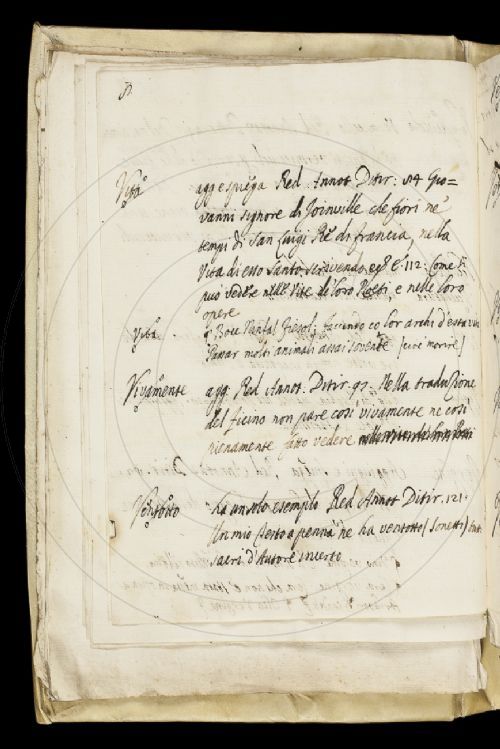 Vita agg: e spiega Red. Annot. Ditir: 114 Gio=
vanni signore di Joinville che fiorì ne
tempi di San Luigi Rè di francia, nella
Vita di esso Santo scrivendo 112: Come si
può vedere nelle Vite di loro Poeti, e nelle loro
opere
Vita Bocc facendo co lor archi d'esta vita
Passar molti animali assai sovente (cioè morire)
Vivamente agg: Red. Annot. Ditir. 97. Nella traduzione
del ficino non pare così vivamente ne così
pienamente fatto vedere
Ventotto ha un solo esempio Red. Annot. Ditir. 121.
Un mio testo a penna ne ha ventotto (sonetti) tutti
sacri d'Autore incerto